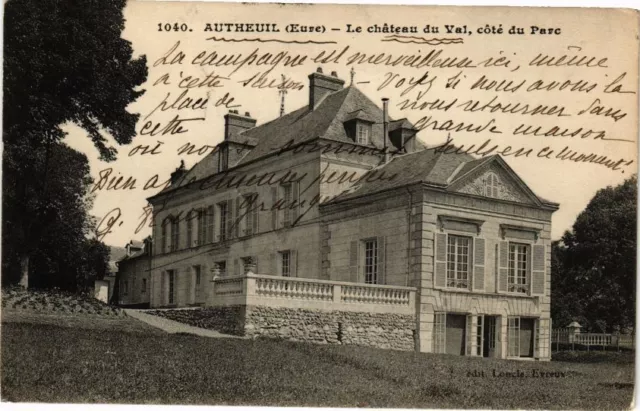 1040. AUTHEUIL (Eure) – Le château du Val, côté du Parc
La campagne est merveilleuse ici, même
à cette saison – Voyez si nous avons la
place de nous retourner dans
cette grande maison
où nous sommes seulement
Bien à vous
édit. Loncle, Evreux